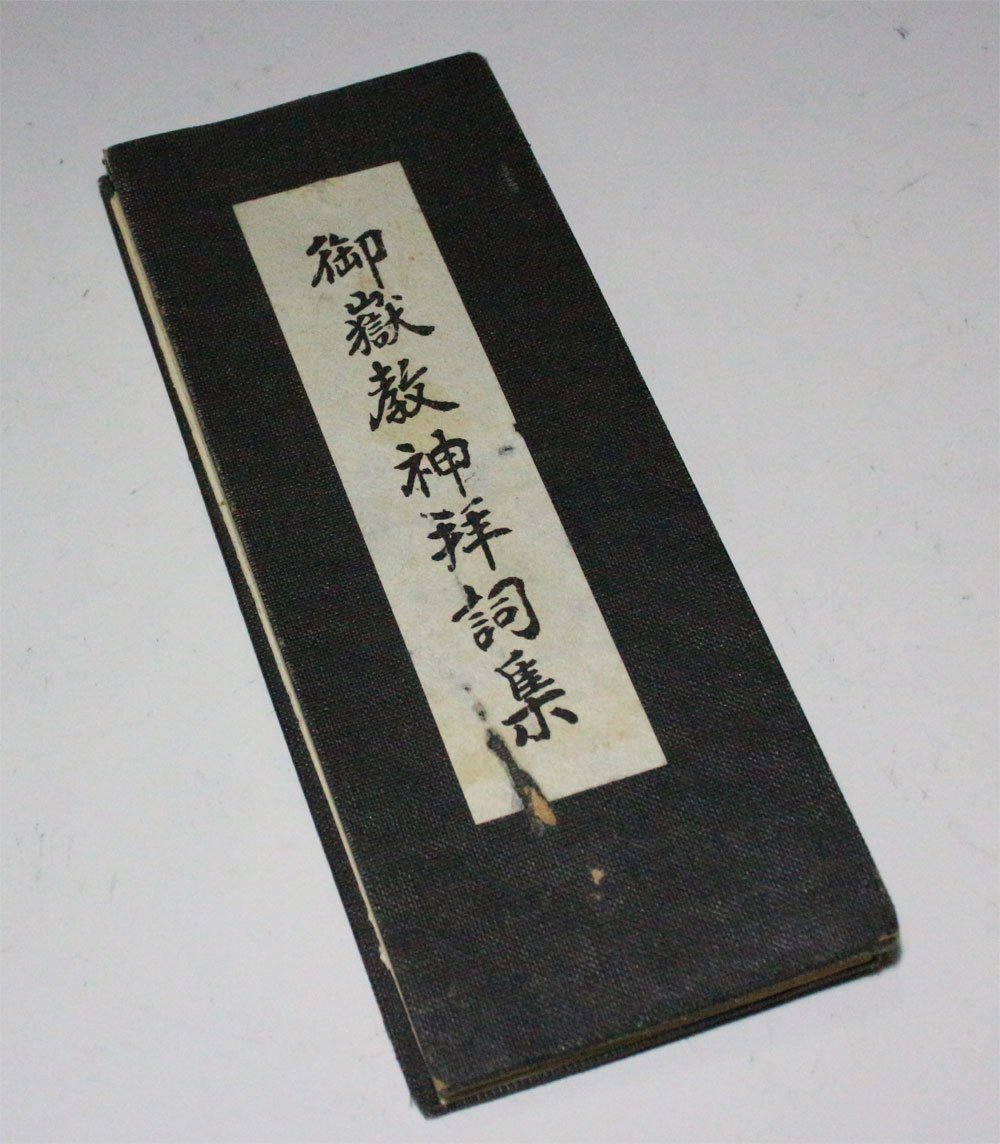 御嶽教神拜詞集